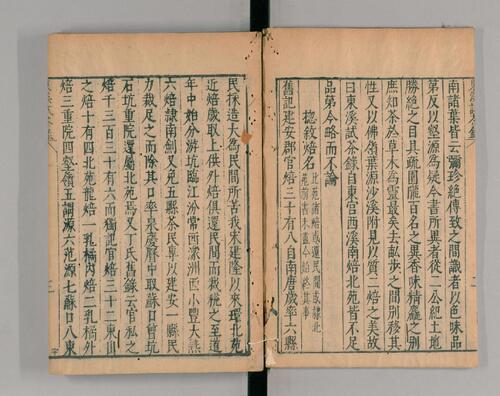 南諸葉皆云彌珍絕傳致之間識者以色味品
第反以壑源為疑今書所異者從二公紀土地
勝絕之目具疏園隴百名之異香味精麤之別
庶知茶於草木為靈最矣去畝步之間別移其
性又以佛嶺葉源沙溪附見以質二焙之美故
曰東溪試茶錄自東宮西溪南焙北苑皆不足
品第今略而不論
揔敘焙名 北苑諸焙或還民間或隸北苑前書未盡今始終其事
舊記建安郡官焙三十有八自南唐歲率六縣
民採造大為民間所苦我宋建隆以來環北苑
近焙歲取上供外焙俱還民間而裁稅之至道
年中始分游坑臨江汾常西濛洲西小豐大熟
六焙隸南劍又免五縣茶民專以建安一縣民
力裁足之而除其口率泉慶曆中取蘇口曾坑
石坑重院還屬北苑焉又丁氏舊錄云官私之
焙千三百三十有六而獨記官焙三十二東山
之焙十有四北苑龍焙一乳橘內焙二乳橘外
焙三重院四壑嶺五謂源六范源七蘇口八東